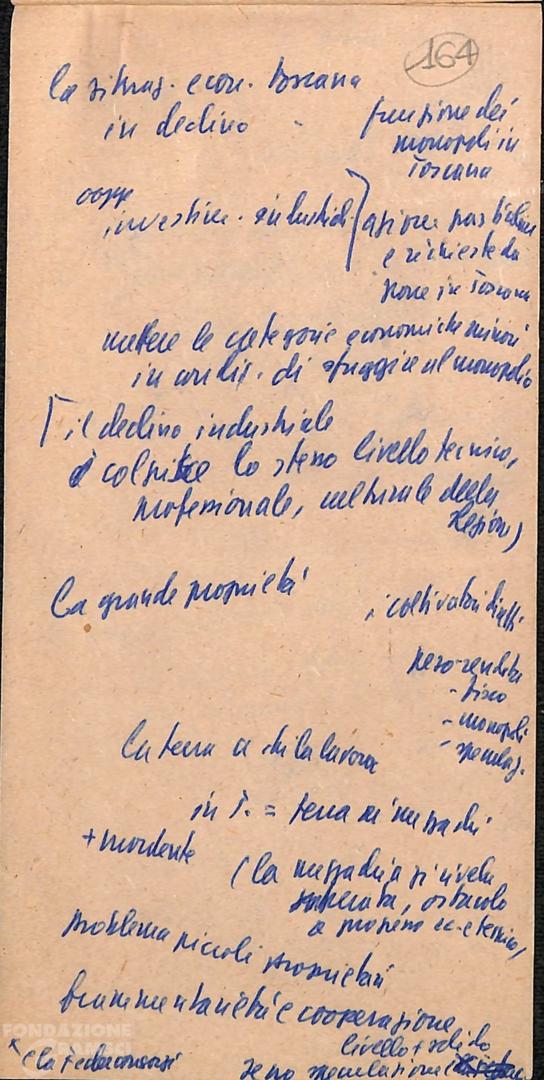 164
la situaz. econ. toscana
in declino
funzione dei
monopoli in
Toscana
oggi
investim. industriali
azione
e richieste da
porre in Toscana
mettere le categorie economiche minori
in condiz. di sfuggire al monopolio
il declino industriale
colpisce lo stesso livello tecnico,
professionale, culturale della
Regione)
La grande proprietà
i coltivatori diretti
peso-rendita
- fisco
- monopoli
- speculaz.
la terra a chi la lavora
in T. = terra ai mezzadri
+ mordente
(la mezzadria si rivela
superata, ostacolo
a progresso ec. e tecnico)
problema piccoli proprietari
frammentarietà e cooperazione
livello + solido
e la Federconsorzi
se no speculazione
FONDAZIONE
GRAMSCI